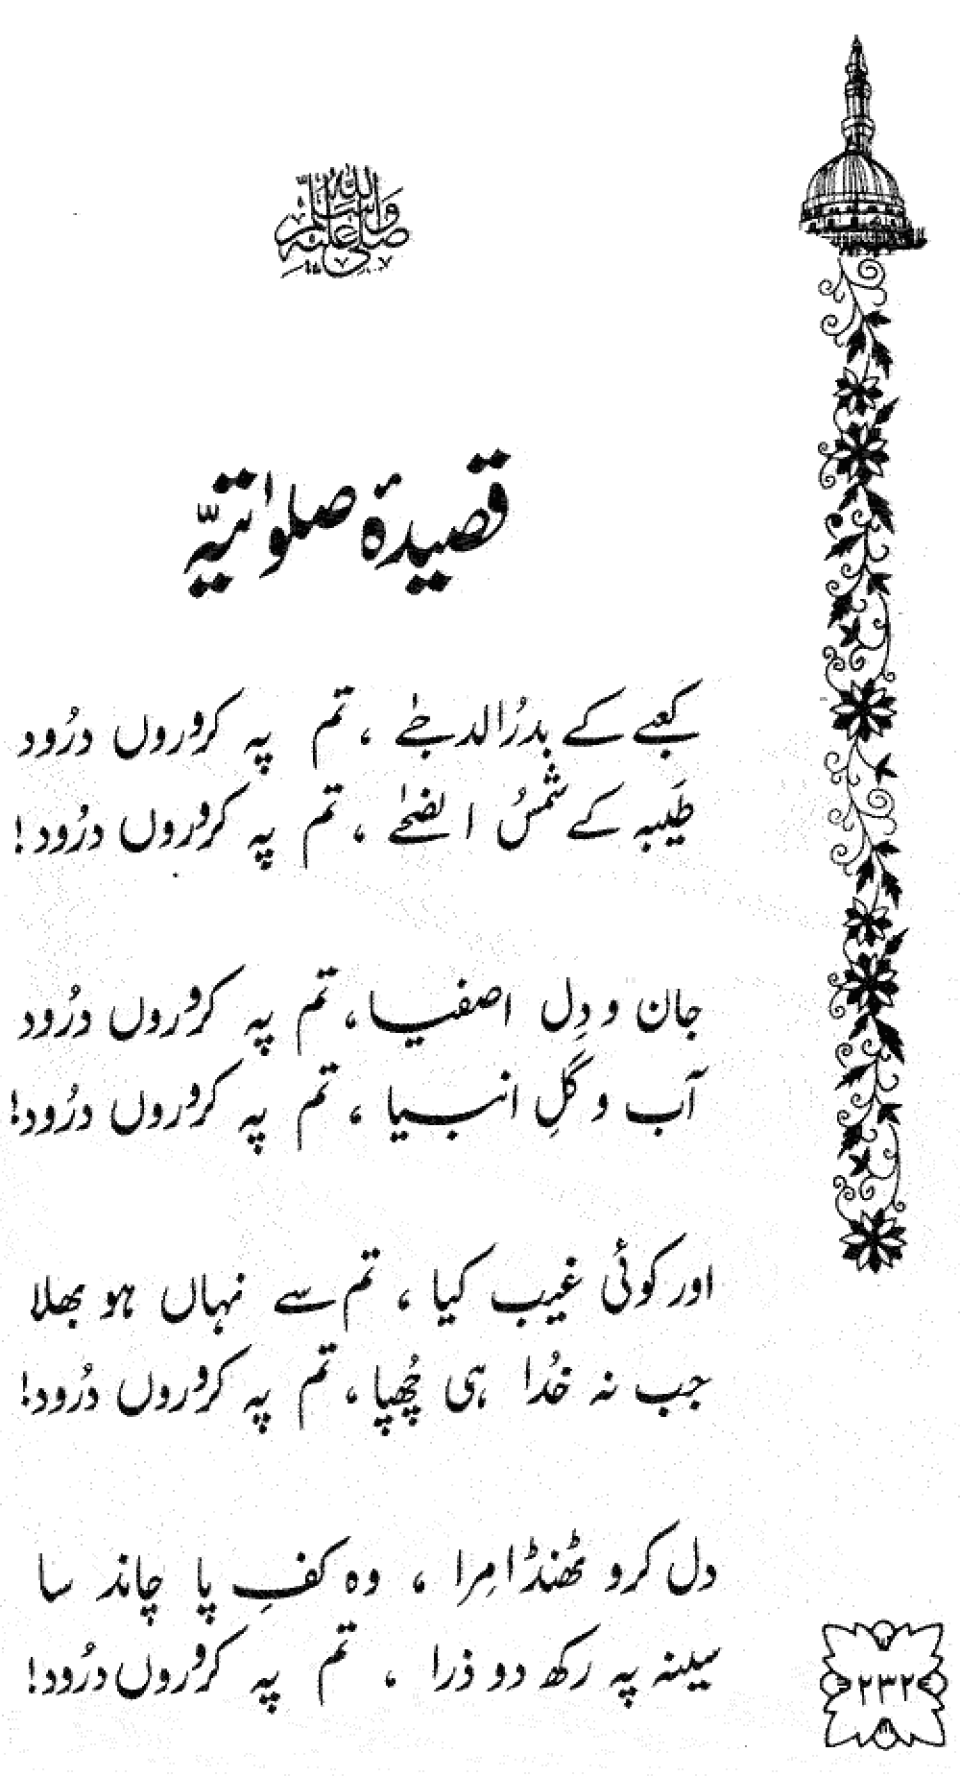 صلی اللہ علیہ وسلم
قصیدۂ صلوٰتیہّ
کعبے کے بدرُالدجےٰ ، تم پہ کروروں درُود
طَیبہ کے شمسُ الضحےٰ ، تم پہ کروروں درُود !
جان و دِل اصفیا ، تم پہ کروروں درُود
آب و گِلِ انبیا ، تم پہ کروروں درُود!
اور کوئی غیب کیا ، تم سے نہاں ہو بھلا
جب نہ خُدا ہی چُھپا ، تم پہ کروروں درُود!
دل کرو ٹھنڈا مِرا ، وہ کفِ پا چاند سا
سینہ پہ رکھ دو ذرا ، تم پہ کروروں درُود!
۲۳۲